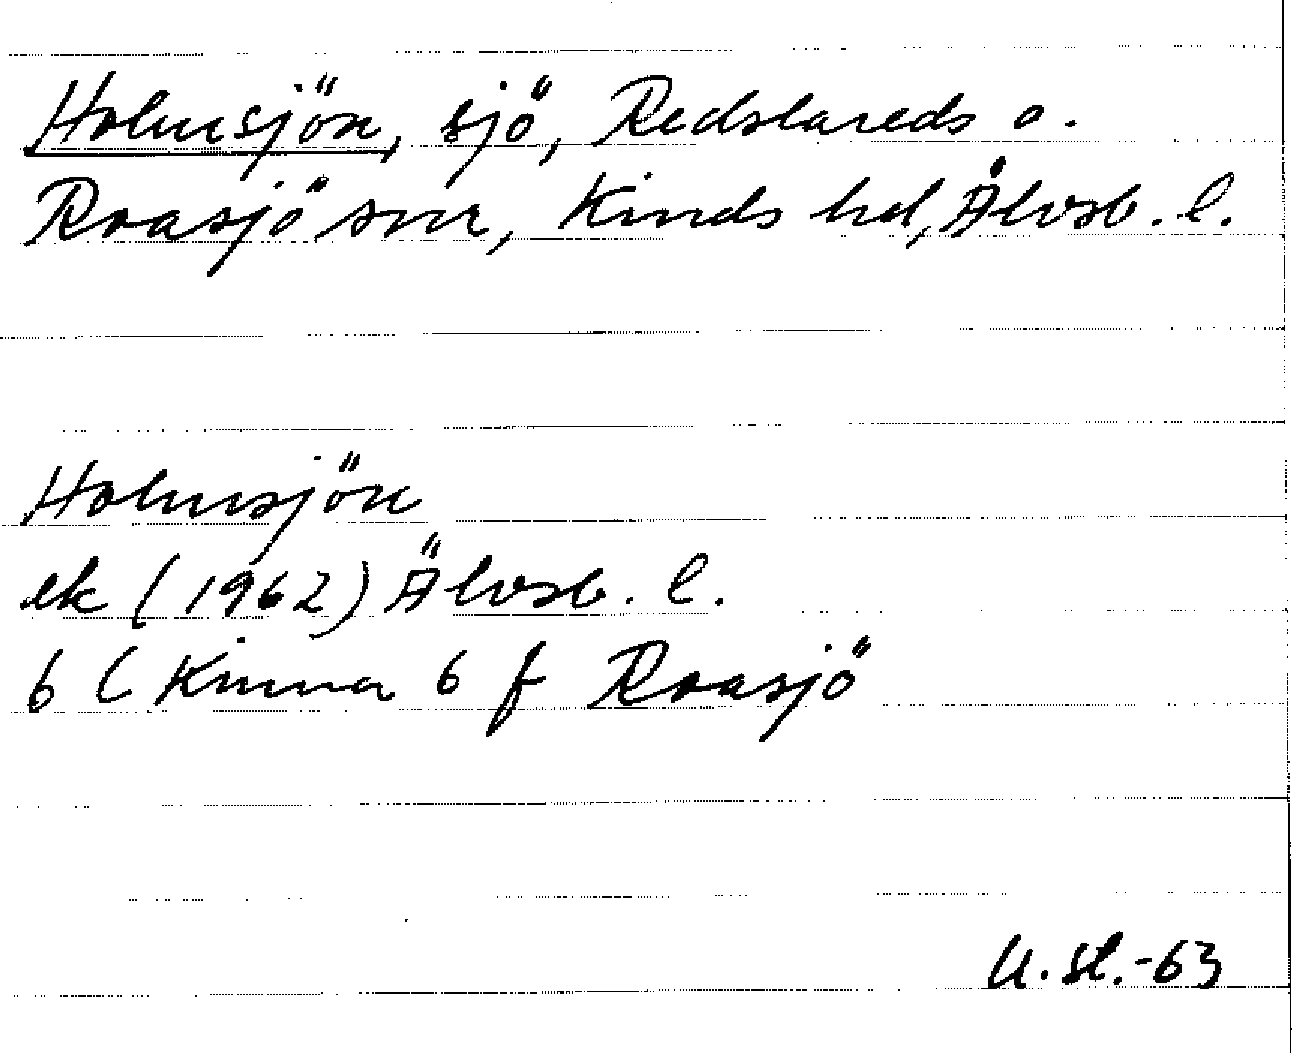 Holmsjön, sjö, Redslareds o.
Roasjö snr, Kinds hd, Älvsb. l.
Holmsjön
ek (1962) Älvsb. l.
6 ( Kinna 6 f Roasjö
U. St.-63